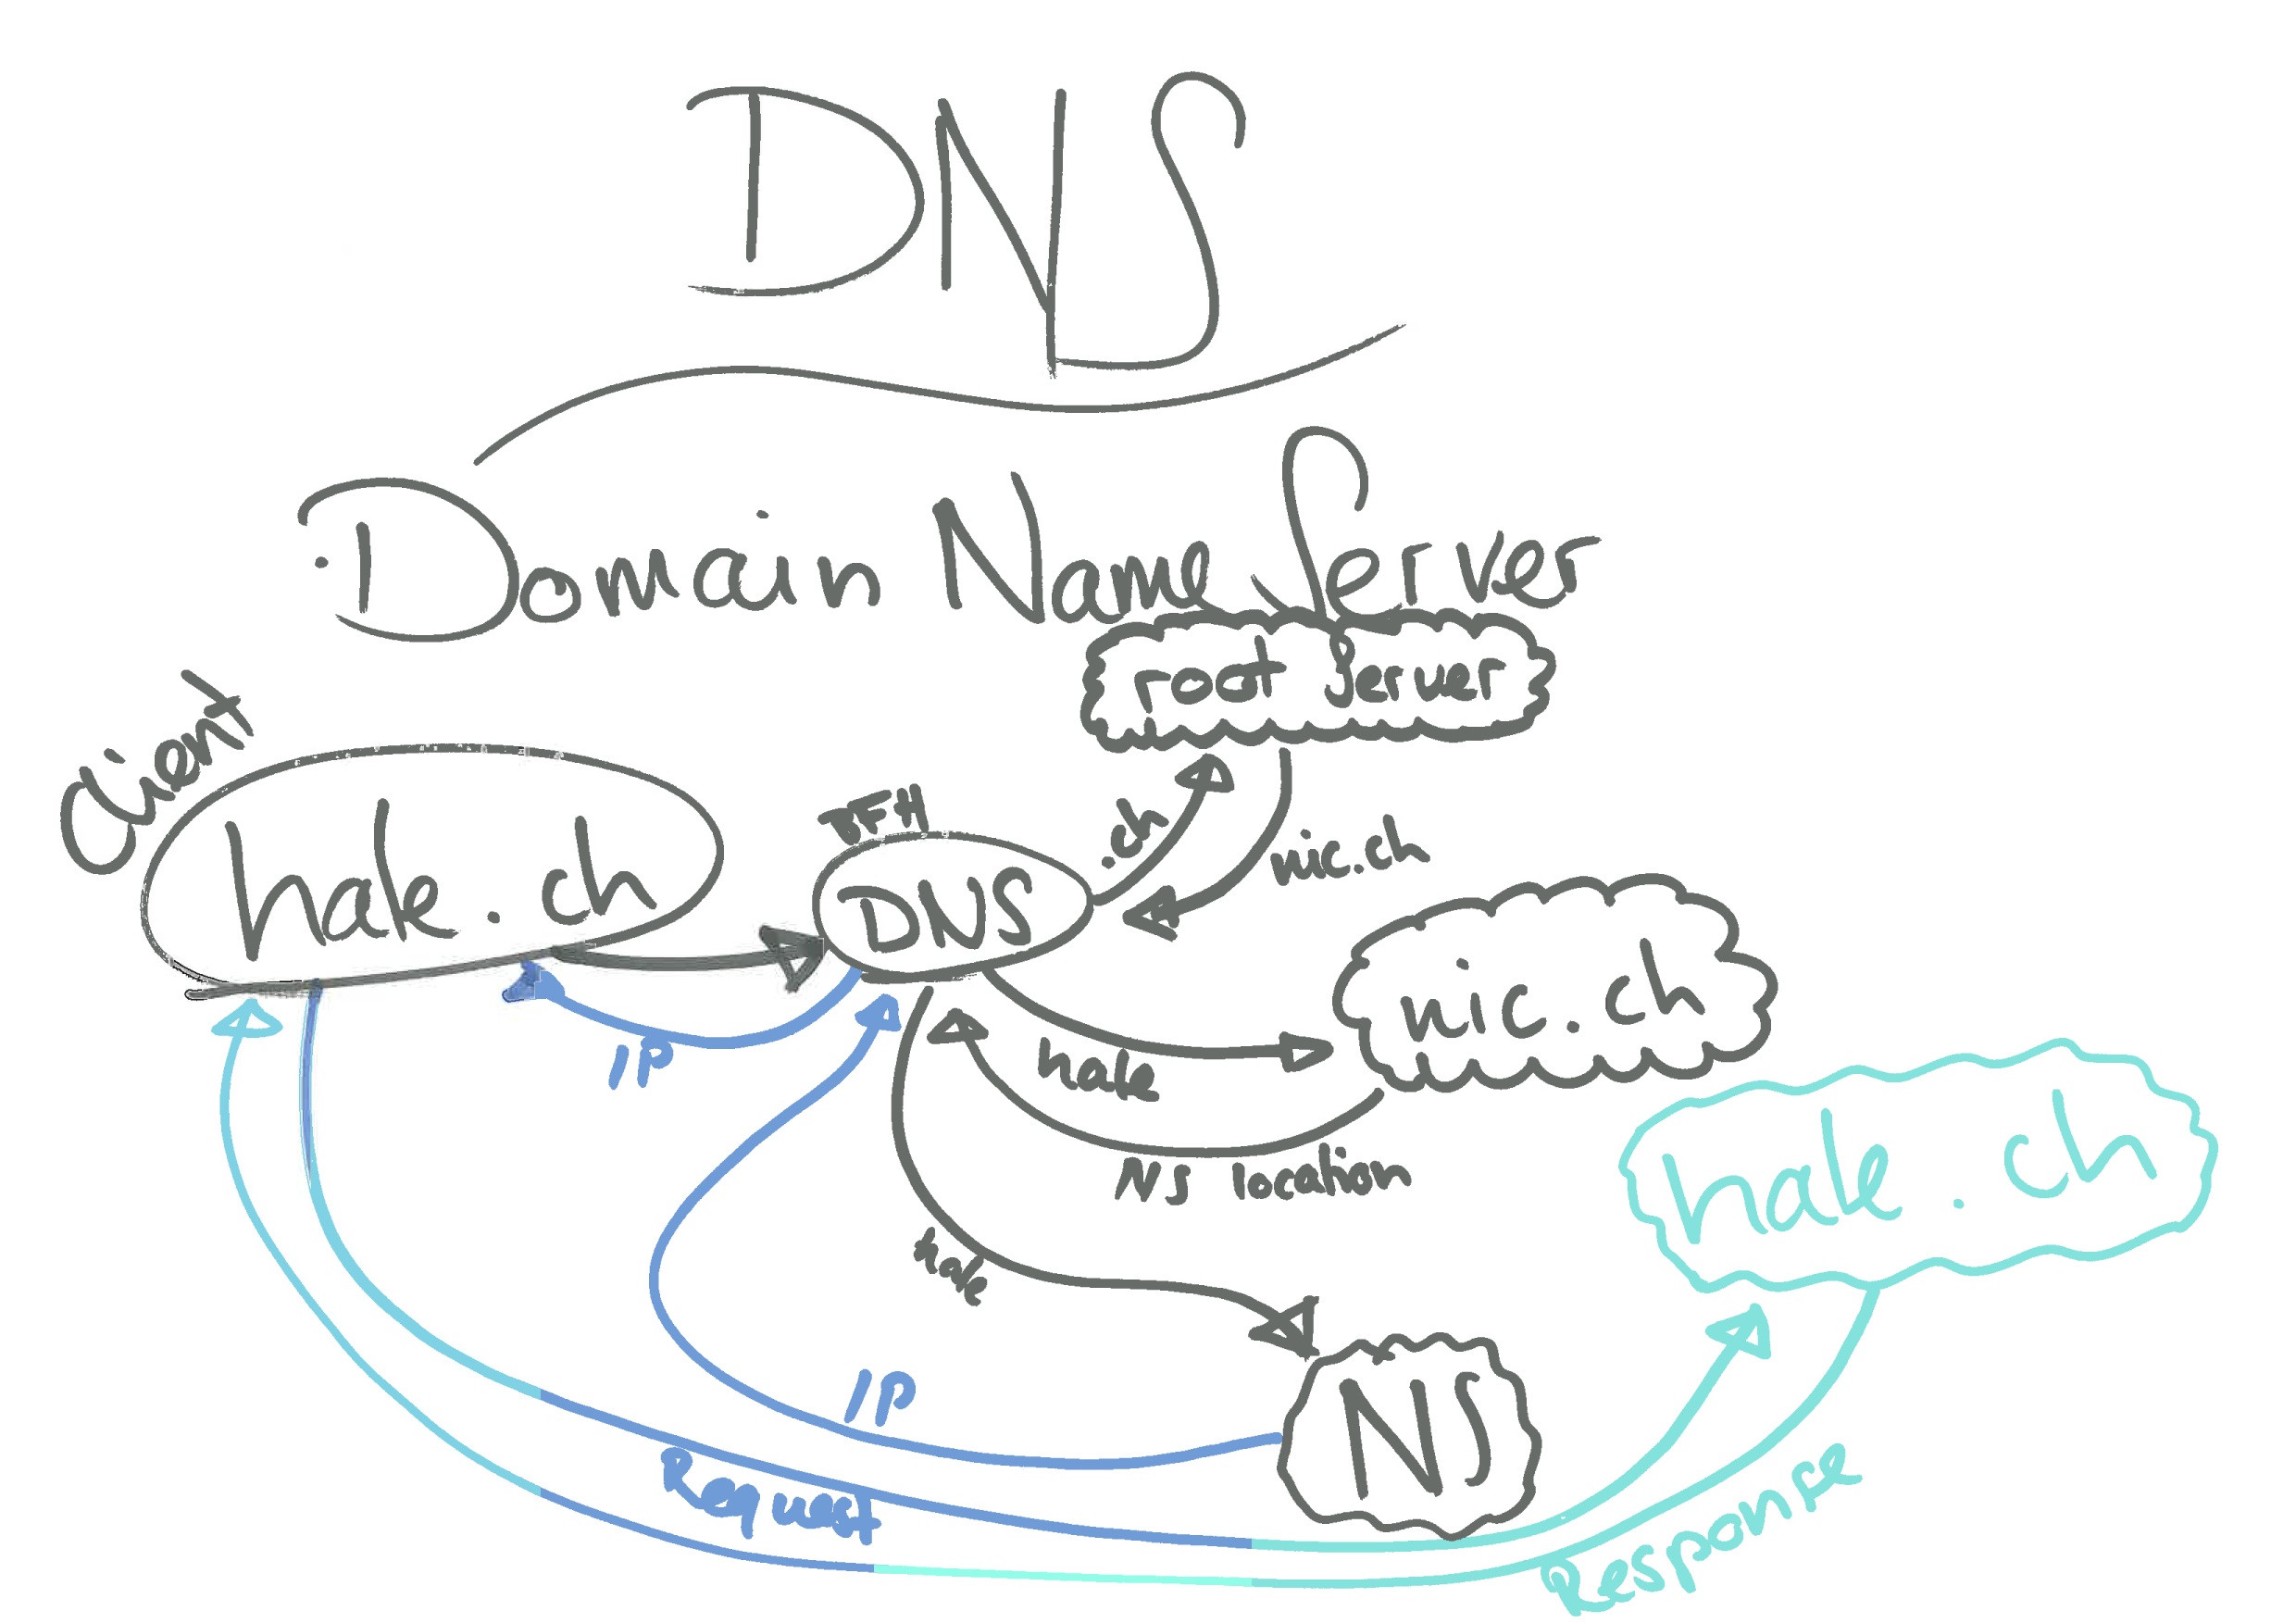 DNS
Domain Name Server
root Server
Client
hale.ch
BFH
DNS
.ch
nic.ch
nic.ch
IP
hale
NS location
hale.ch
hale
IP
NS
Request
Response